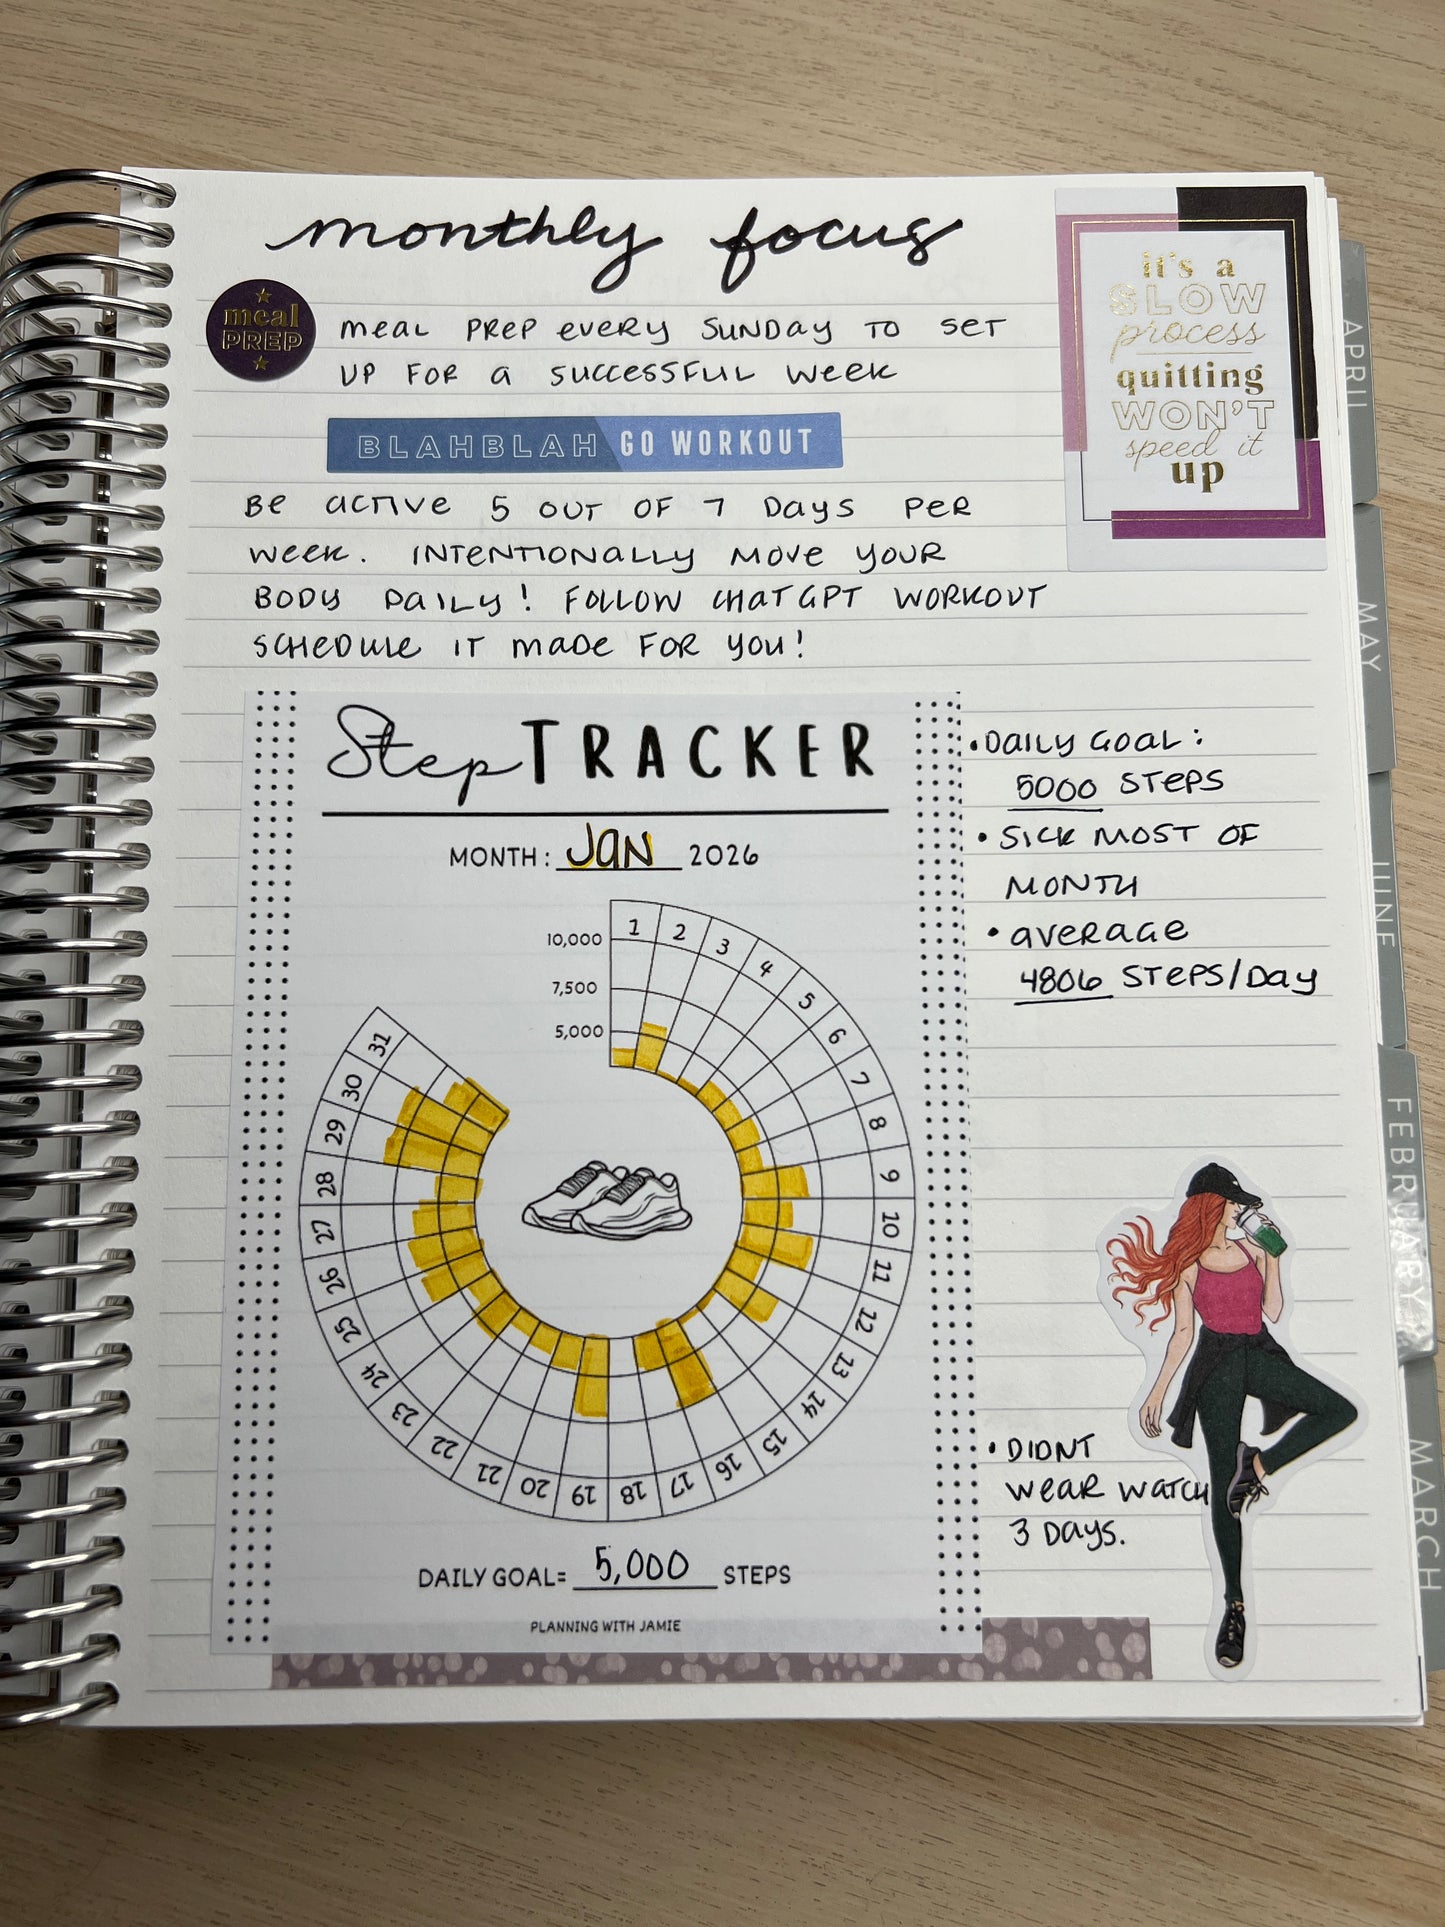 monthly focus
meal PREP
meal PREP every SUNDAY TO SET
UP FOR a successful week
BLAHBLAH GO WORKOUT
Be active 5 out of 7 Days Per
week. Intentionally move your
body daily! Follow ChatGPT workout
schedule it made for you!
it's a
SLOW
process
quitting
WON'T
speed it
up
Step TRACKER
MONTH: JAN 2026
10,000
7,500
5,000
1
2
3
4
5
6
7
8
9
10
11
12
13
14
15
16
17
18
19
20
21
22
23
24
25
26
27
28
29
30
31
DAILY GOAL= 5,000 STEPS
PLANNING WITH JAMIE
•Daily Goal:
5000 Steps
• Sick most of
month
• average
4806 Steps/Day
• Didnt
wear watch
3 Days.
APRIL
MAY
JUNE
FEBRUARY
MARCH